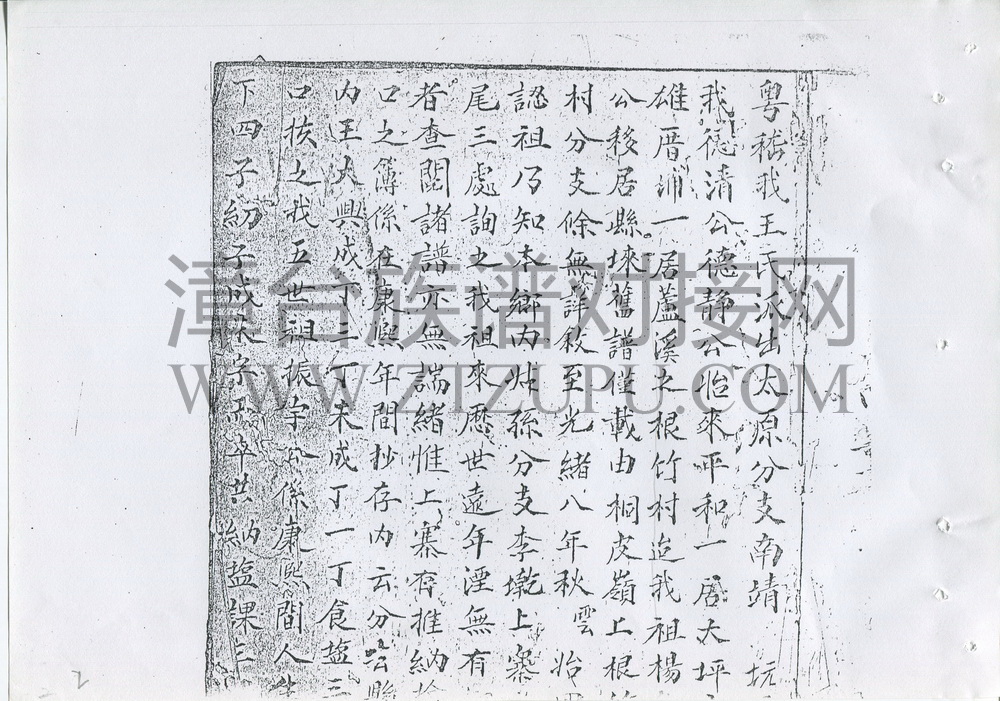 粤稽我王氏派出太原分支南靖 坑
我德清公德静公怡來平和一居大坪
雄厝浦一居蘆溪之根竹村迨我祖楊
公移居縣埭舊譜僅載由桐皮嶺上根
村分支餘無詳敘至光緒八年秋雲 怡
認祖乃知本鄉内 孫分支李墩上寨
尾三處詢之我祖來歷世遠年湮無有
者查閱諸譜亦無端緒惟上寨存推納
口之簿係在康熙年間抄存内云分 縣
内王大興成丁三丁未成丁一丁食塩三
口核之我五世祖振宇公係康熙間人生
下四子幼子成 宗 共納塩課三
漳台族谱对接网
WWW.ZTZUPU.COM
2